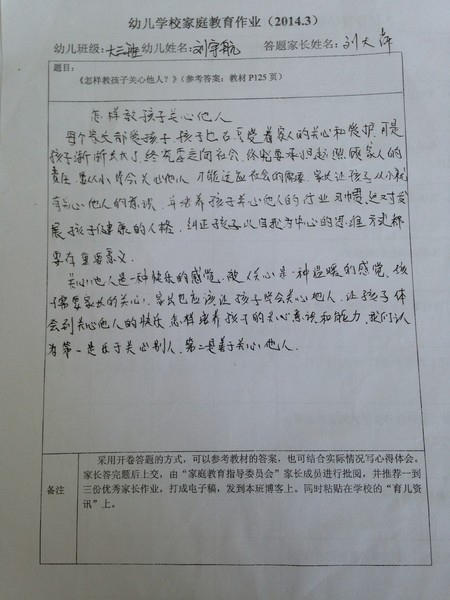 幼儿学校家庭教育作业（2014.3）
幼儿班级：大三班 幼儿姓名：刘宇航 答题家长姓名：刘大萍
题目：
《怎样教孩子关心他人？》（参考答案：教材P125页）
怎样教孩子关心他人
每个家长都爱孩子，孩子也在享受着家人的关心和爱护，可是
孩子渐渐长大了终究要走向社会，他必要承担起照顾家人的
责任，要从小学会关心他人，才能适应社会的需要，家长让孩子从小就
有关心他人的意识，并培养孩子关心他人的行业习惯，这对发
展孩子健康的人格，纠正孩子以自我为中心的思维方式都
有重要意义。
关心他人是一种快乐的感觉，被人关心是一种温暖的感觉，孩
子需要家长的关心，家长也应该让孩子学会关心他人，让孩子体
会到关心他人的快乐，怎样培养孩子的关心意识和能力，我们认
为第一是乐于关心别人，第二是善于关心他人．
备注
采用开卷答题的方式，可以参考教材的答案，也可结合实际情况写心得体会。
家长答完题后上交，由“家庭教育指导委员会”家长成员进行批阅，并推荐一到
三份优秀家长作业，打成电子稿，发到本班博客上。同时粘贴在学校的“育儿资
讯”上。